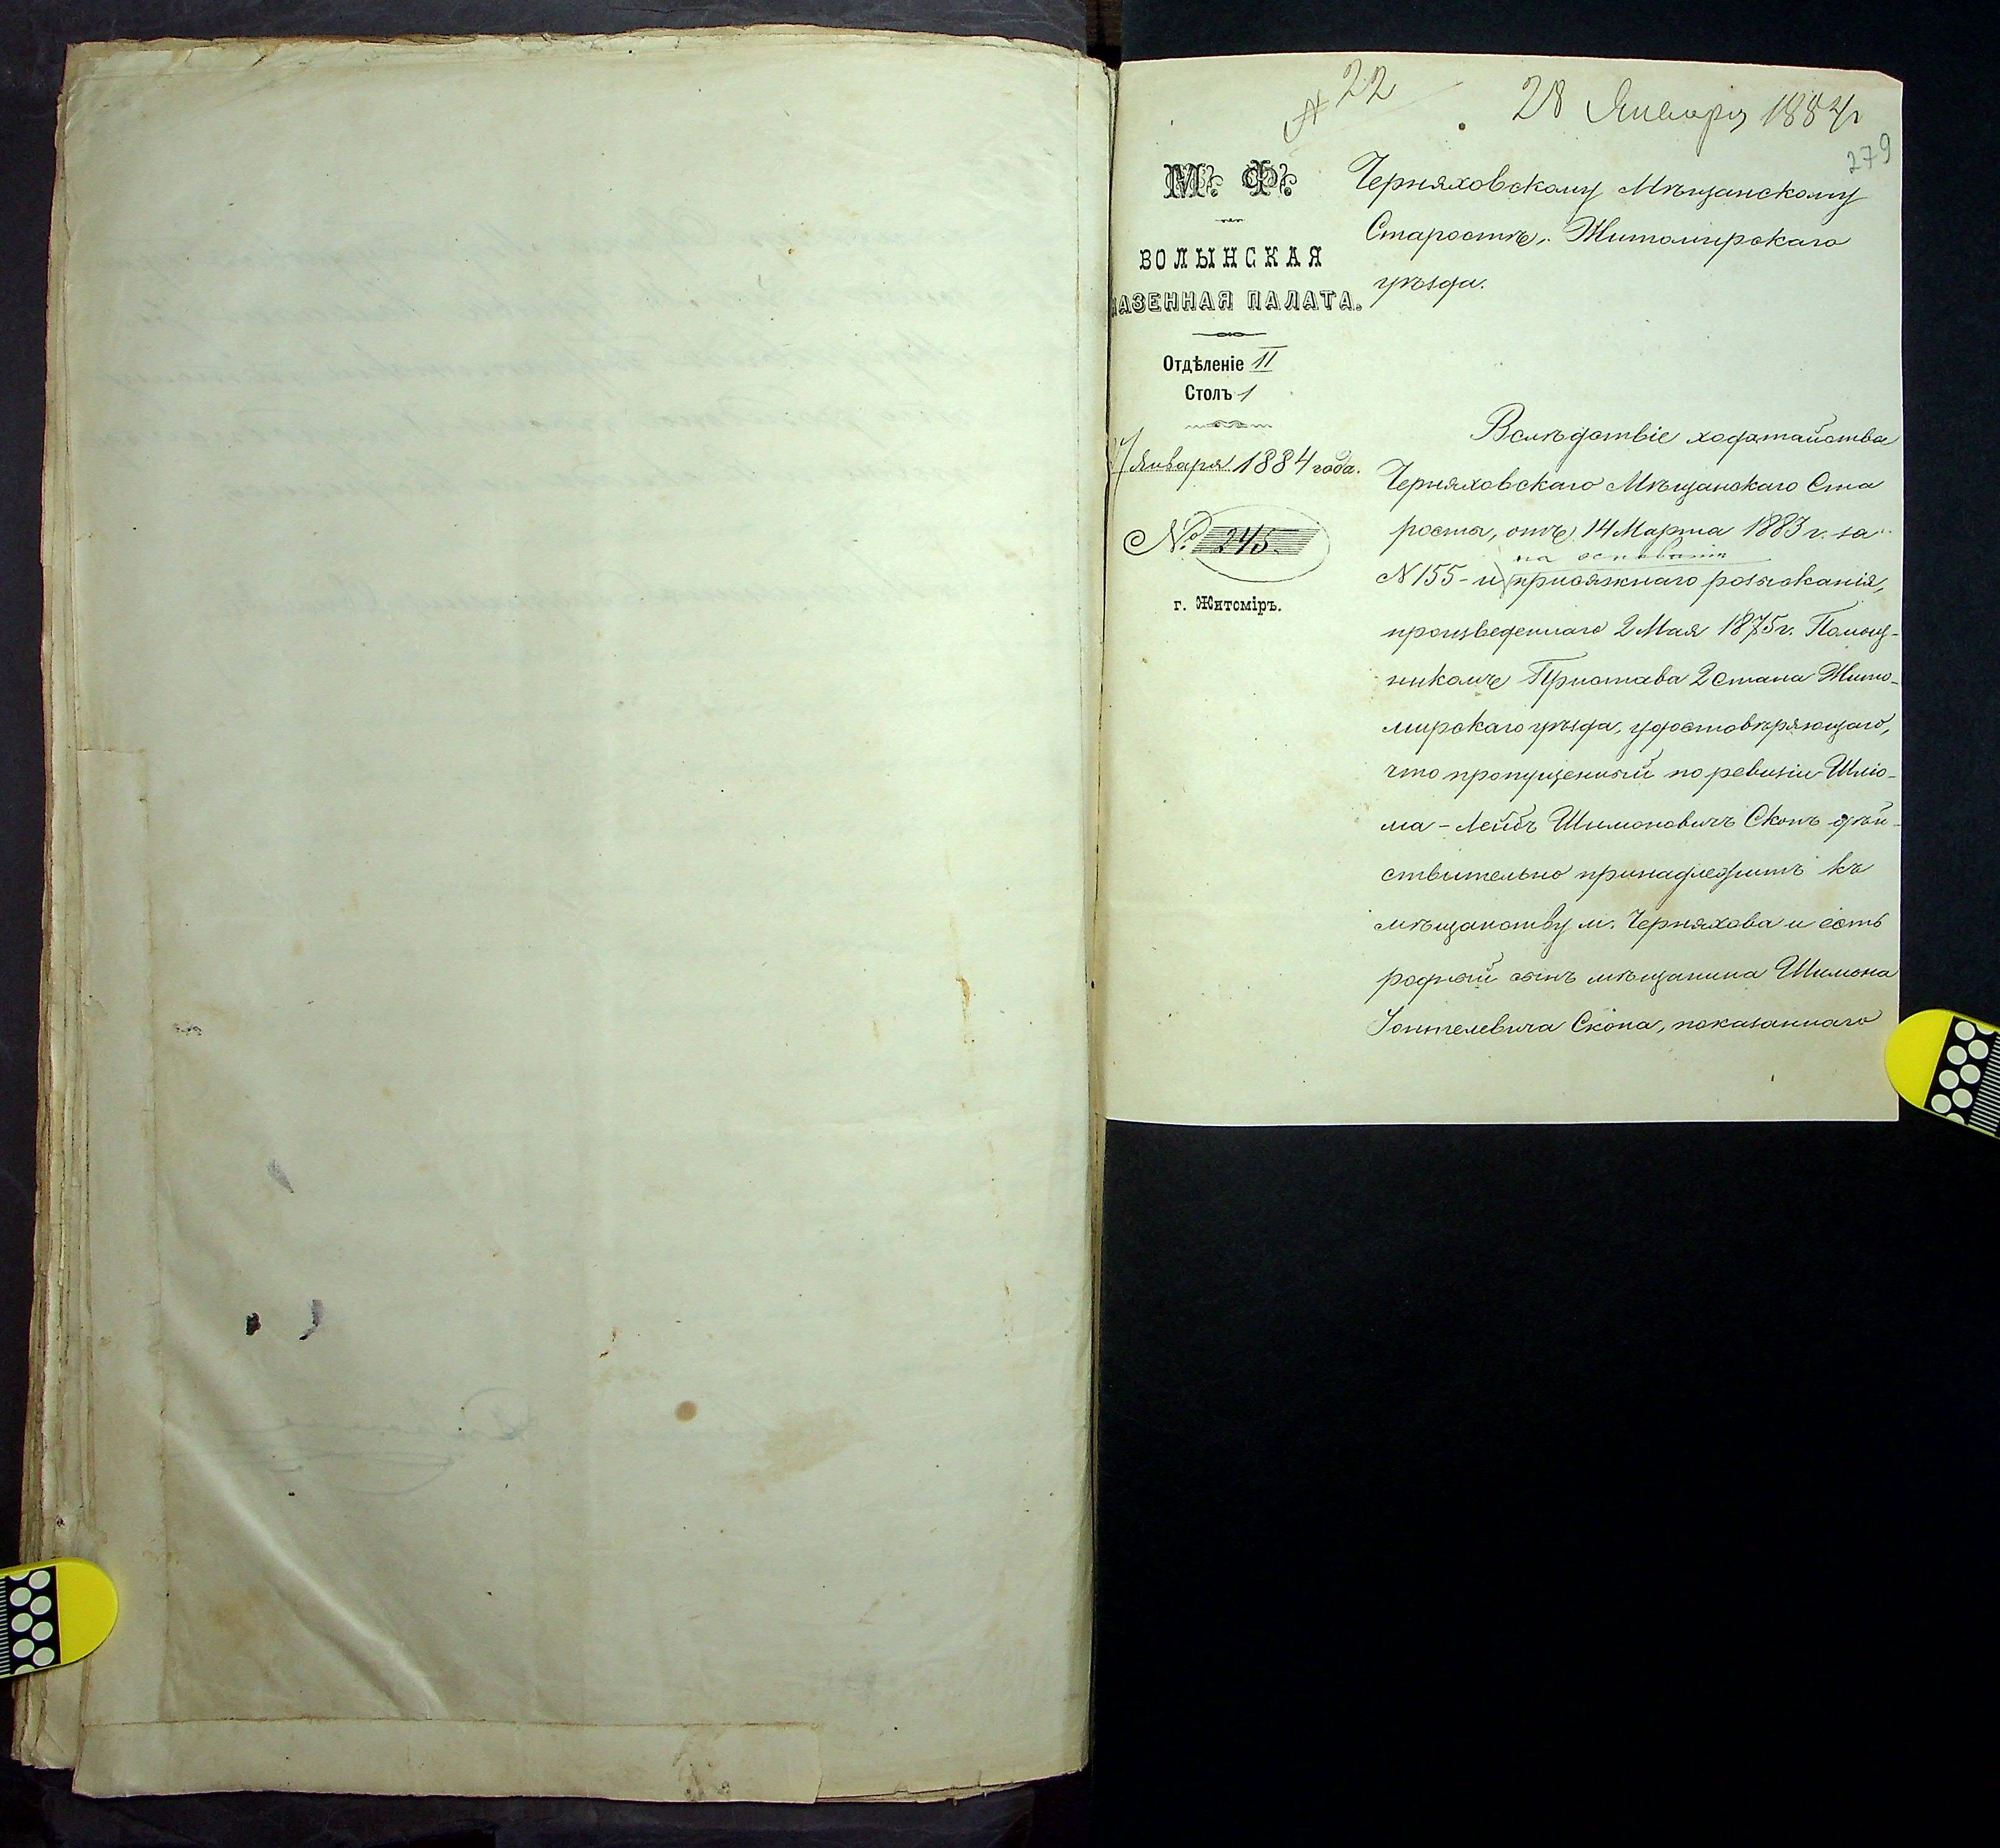 № 22
28 Января 1884 г
279
М. Ф.
ВОЛЫНСКАЯ
КАЗЕННАЯ ПАЛАТА.
Отдѣленіе II
Столъ 1
Января 1884 года.
№ 245.
г. Житоміръ.
Черняховскому Мѣщанскому
Старостѣ, Житомирскаго
уѣзда.
Вслѣдствіе ходатайства
Черняховскаго Мѣщанскаго Ста
росты, отъ 14 Марта 1883 г. за
на основаніи
N 155 - и присяжнаго розысканія,
произведеннаго 2 Мая 1875 г. Помощ-
никомъ Пристава 2 стана Жито-
мирскаго уѣзда, удостовѣряющаго,
что пропущенный по ревизіи Шлio-
ма - Лейбъ Шимоновичъ Скопъ дѣй-
ствительно принадлежитъ къ
мѣщанству м. Черняхова и есть
родный сынъ мѣщанина Шимона
Іонтелевича Скопа, показаннаго